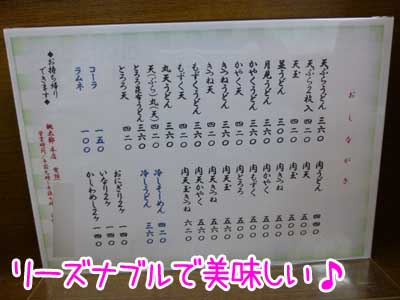 おしながき
天ぷらうどん 三六〇
天ぷら2枚入 四二〇
天玉 四二〇
昼うどん
月見うどん 三六〇
かやくうどん 三六〇
かやく天 四二〇
きつねうどん 三六〇
きつね天 四二〇
もずくうどん 三六〇
もずく天 四二〇
丸天うどん 三六〇
天(ぷら)丸(天) 四二〇
とろろ昆布うどん 三六〇
とろろ天 四二〇
コーラ 一五〇
ラムネ 一〇〇
◆お持ち帰りできます◆
肉うどん 四四〇
肉天 五〇〇
肉玉 五〇〇
肉きつね 五〇〇
肉かやく 五〇〇
肉もずく 五〇〇
肉とろろ 五〇〇
肉天玉
肉天かやく
肉天きつね 六二〇
冷しそーめん 四二〇
冷しうどん 三六〇
おにぎり2ヶ
いなり2ヶ
かしわめし2ヶ
リーズナブルで美味しい♪